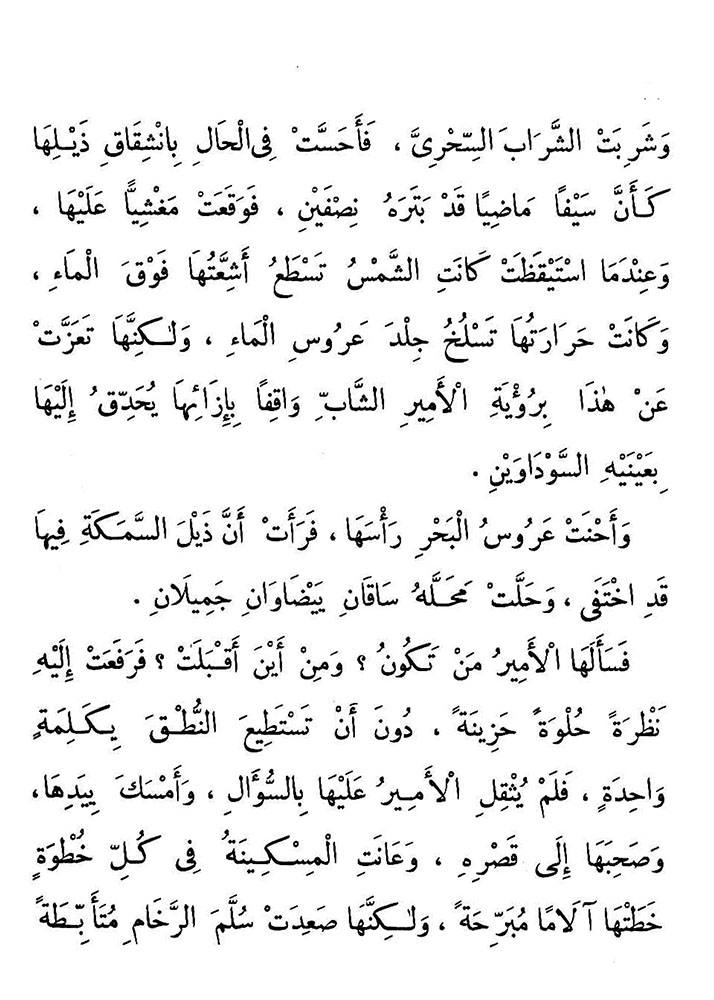 وَشَرِبَتْ الشَّرَابَ السِّحْرِىَّ ، فَأَحَسَّتْ فِى الْحَالِ بِانْشِقَاقِ ذَيْلِهَا
كَأَنَّ سَيْفًا مَاضِيًا قَدْ بَتَرَهُ نِصْفَيْنِ ، فَوَقَعَتْ مَغْشِيًّا عَلَيْهَا ،
وَعِنْدَمَا اسْتَيْقَظَتْ كَانَتِ الشَّمْسُ تَسْطَعُ أَشِعَّتُهَا فَوْقَ الْمَاءِ ،
وَكَانَتْ حَرَارَتُهَا تَسْلُخُ جِلْدَ عَرُوسِ الْمَاءِ ، وَلٰكِنَّهَا تَعَزَّتْ
عَنْ هٰذَا بِرُؤْيَةِ الْأَمِيرِ الشَّابِّ وَاقِفًا بِإِزَائِهَا يُحَدِّقُ إِلَيْهَا
بِعَيْنَيْهِ السَّوْدَاوَيْنِ .
وَأَحْنَتْ عَرُوسُ الْبَحْرِ رَأْسَهَا ، فَرَأَتْ أَنَّ ذَيْلَ السَّمَكَةِ فِيهَا
قَدِ اخْتَفَى ، وَحَلَّتْ مَحَلَّهُ سَاقَانِ بَيْضَاوَانِ جَمِيلَانِ .
فَسَأَلَهَا الْأَمِيرُ مَنْ تَكُونُ ؟ وَمِنْ أَيْنَ أَقْبَلَتْ ؟ فَرَفَعَتْ إِلَيْهِ
نَظْرَةً حُلْوَةً حَزِينَةً ، دُونَ أَنْ تَسْتَطِيعَ النُّطْقَ بِكَلِمَةٍ
وَاحِدَةٍ ، فَلَمْ يُثْقِلِ الْأَمِيرُ عَلَيْهَا بِالسُّؤَالِ ، وَأَمْسَكَ بِيَدِهَا،
وَصَحِبَهَا إِلَى قَصْرِهِ ، وَعَانَتِ الْمِسْكِينَةُ فِى كُلِّ خُطْوَةٍ
خَطَتْهَا آلَامًا مُبَرِّحَةً ، وَلٰكِنَّهَا صَعِدَتْ سُلَّمَ الرَّخَامِ مُتَأَبِّطَةً